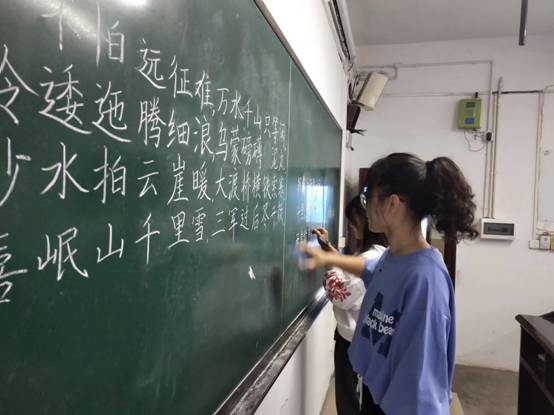 怕远征难,万水千山只等闲
逶迤腾细浪,乌蒙磅礴
水拍云崖暖,大渡桥横铁索寒
喜岷山千里雪,三军过后尽开颜
maine
black bears